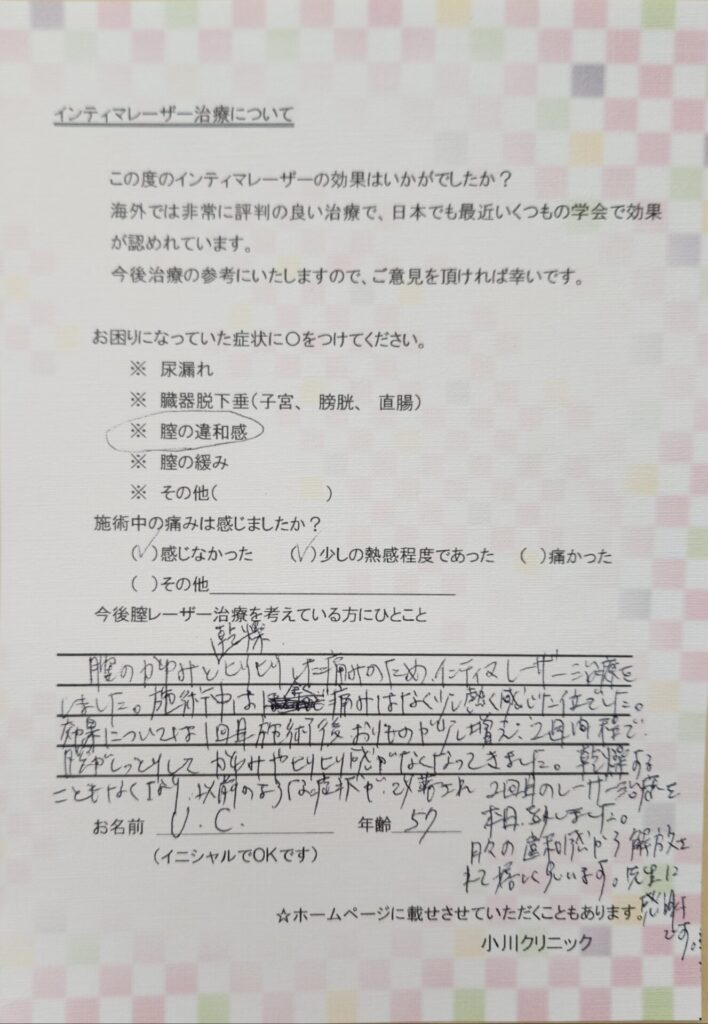 インティマレーザー治療について
この度のインティマレーザーの効果はいかがでしたか？
海外では非常に評判の良い治療で、日本でも最近いくつもの学会で効果
が認めれています。
今後治療の参考にいたしますので、ご意見を頂ければ幸いです。
お困りになっていた症状に〇をつけてください。
※ 尿漏れ
※ 臓器脱下垂（子宮、 膀胱、 直腸）
※ 膣の違和感
※ 膣の緩み
※ その他（ ）
施術中の痛みは感じましたか？
（✓）感じなかった （✓）少しの熱感程度であった （ ）痛かった
（ ）その他
今後膣レーザー治療を考えている方にひとこと
乾燥
膣のかゆみとヒリヒリした痛みのため、インティマレーザー治療を
しました。施術中は 痛みはなく少し熱く感じた位でした。
効果については1回目施術後おりものが少し増え、2週間程で
膣がしっとりして かゆみやヒリヒリ感がなくなってきました。乾燥する
こともなくなり、以前のような症状が 改善され 2回目のレーザー治療を
本日 しました。
お名前 U.C. 年齢 57
日々の違和感から解放さ
（イニシャルでOKです）
れて嬉しく思います。先生に
感謝
☆ホームページに載せさせていただくこともあります。
です。
小川クリニック